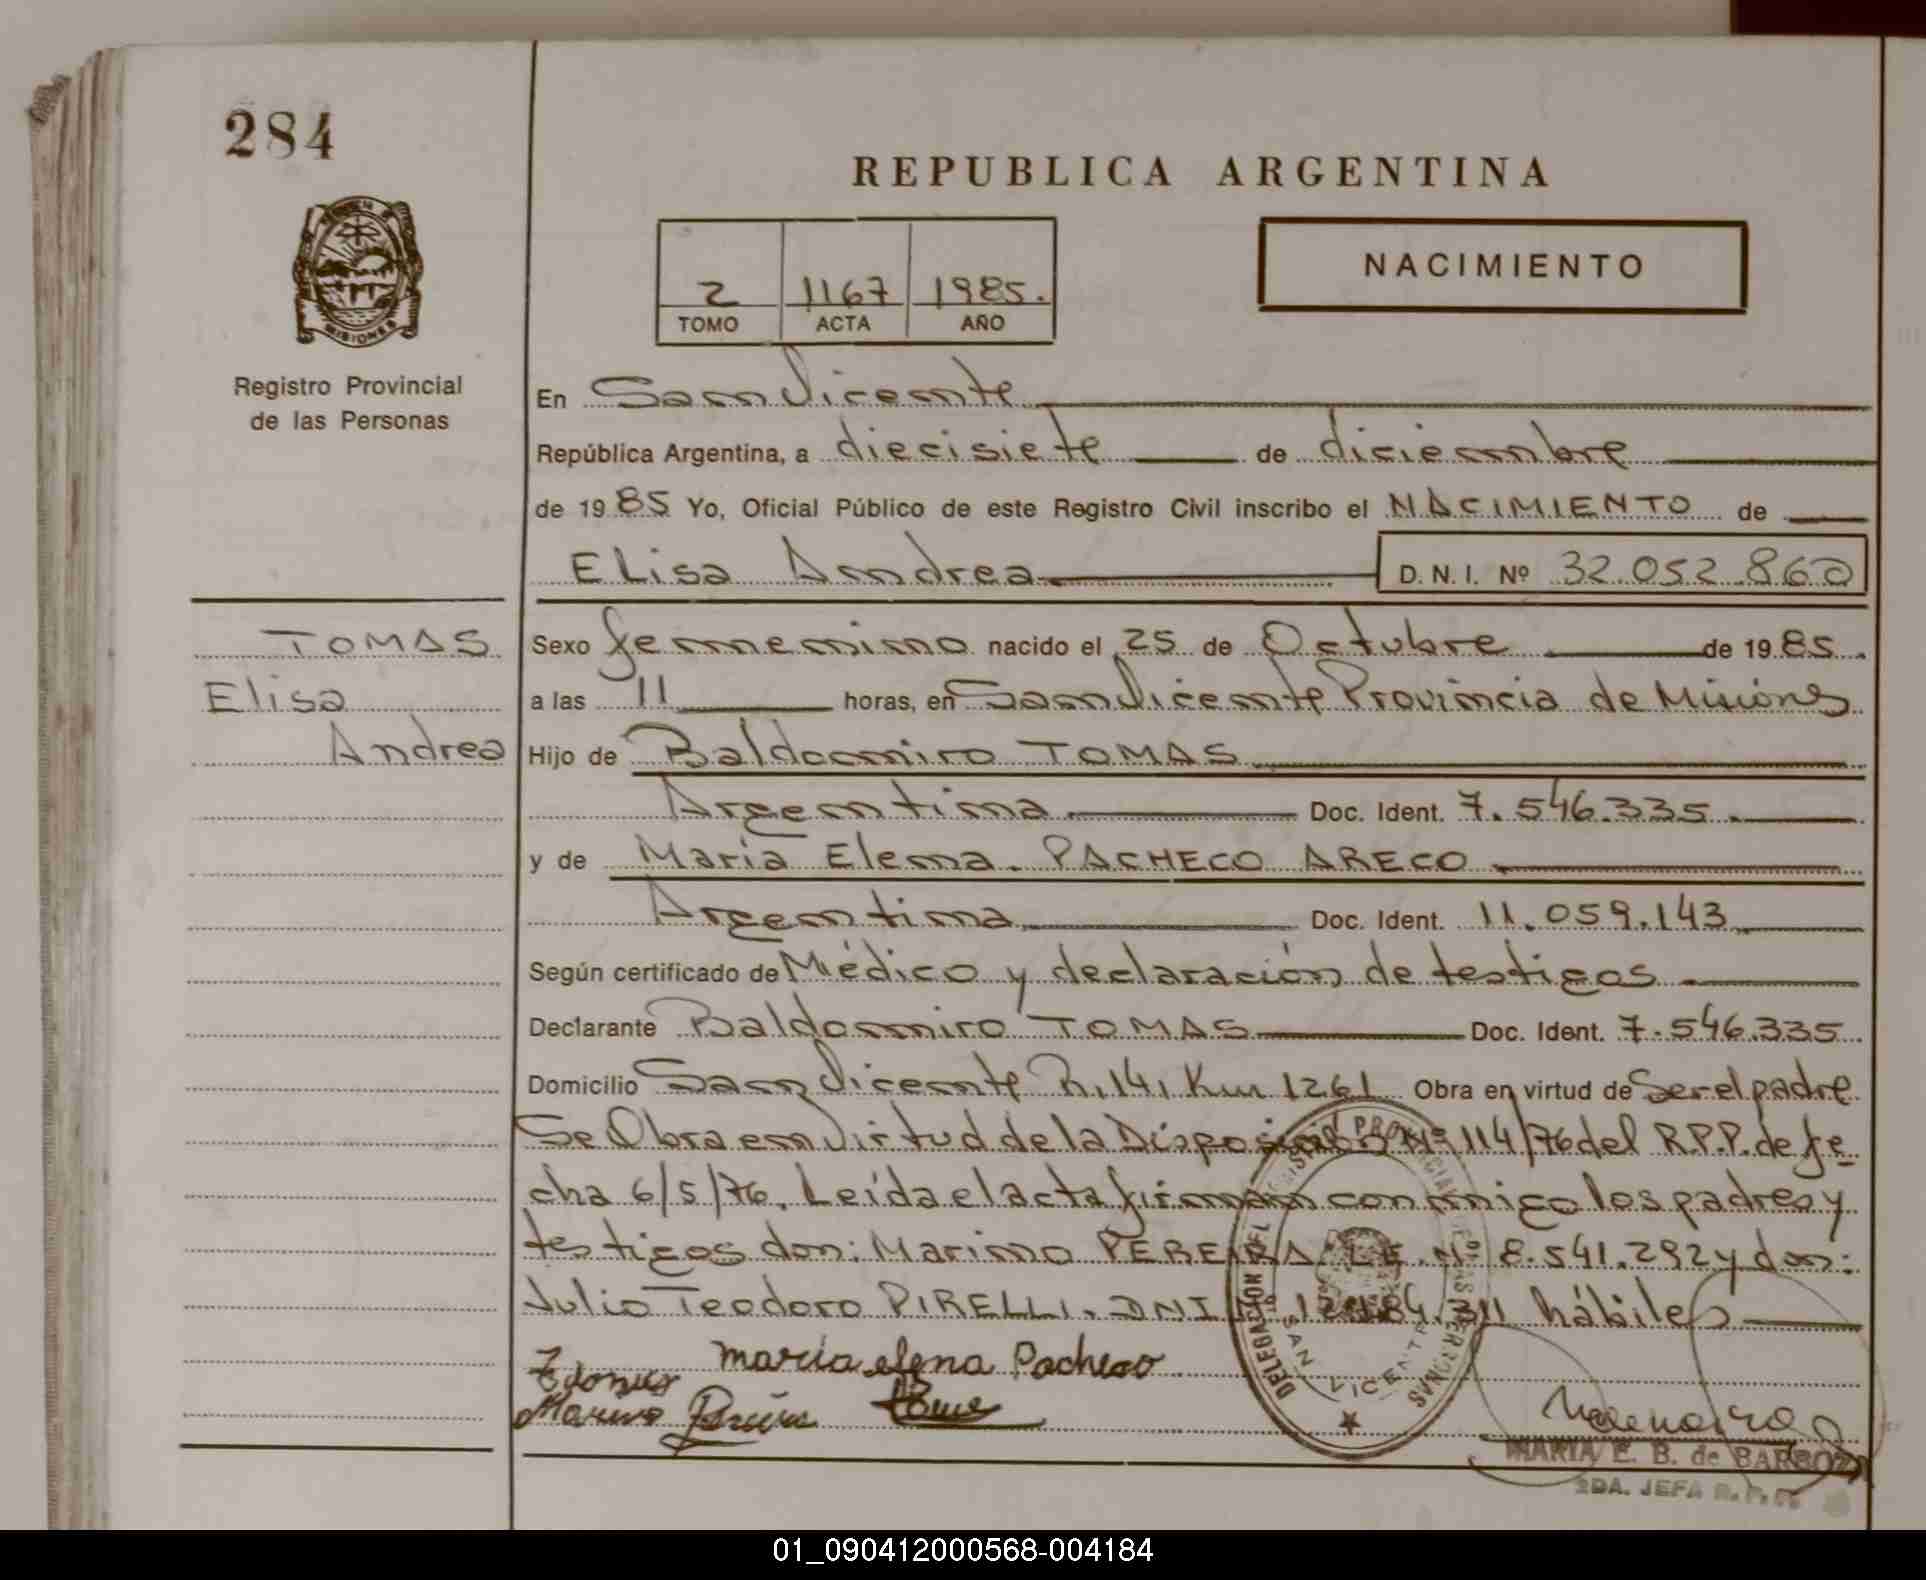 284
REPUBLICA ARGENTINA
MISIONES
Registro Provincial
de las Personas
2 1167 1985.
TOMO ACTA AÑO
NACIMIENTO
En San Vicente
República Argentina, a diecisiete de diciembre
de 1985 Yo, Oficial Público de este Registro Civil inscribo el NACIMIENTO de
Elisa Andrea D. N. I. Nº 32.052.860
TOMAS
Elisa
Andrea
Sexo femenino nacido el 25 de Octubre de 1985.
a las 11 horas, en San Vicente Provincia de Misiones
Hijo de Baldomiro TOMAS
Argentina Doc. Ident. 7.546.335.
y de María Elena. PACHECO ARECO
Argentina Doc. Ident. 11.059.143
Según certificado de Médico y declaración de testigos
Declarante Baldomiro TOMAS Doc. Ident. 7.546.335
Domicilio San Vicente R.141 Km 1261 Obra en virtud de Ser el padre
Se Obra en Virtud de la Disposición Nº 114/76 del R.P.P. de fe-
cha 6/5/76. Leída el acta firman conmigo los padres y
testigos don: Marino PEREIRA L.E. Nº 8.541.292 y don:
Julio Teodoro PIRELLI. DNI 311 hábiles
maria elena Pacheco
Marino
DELEGACION DEL REGISTRO PROVINCIAL DE LAS PERSONAS
SAN VICENTE
MARIA E. B. de BARBOZA
2DA. JEFA
01_090412000568-004184